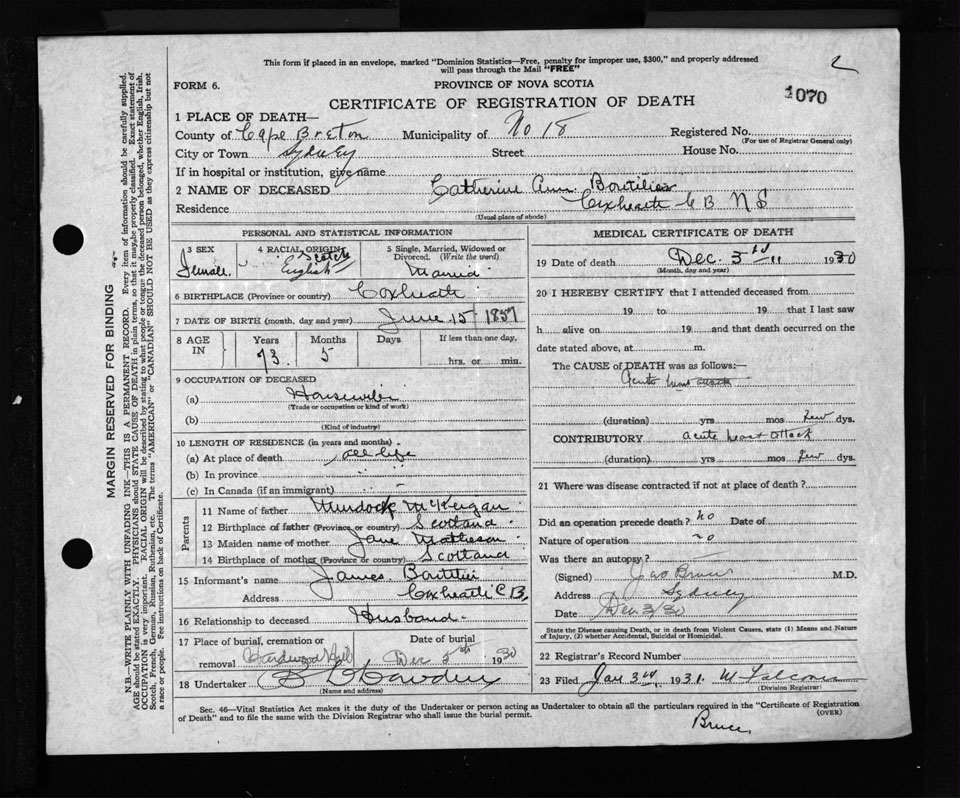 This form if placed in an envelope, marked "Dominion Statistics—Free, penalty for improper use, $300," and properly addressed
will pass through the Mail "FREE"
FORM 6.
PROVINCE OF NOVA SCOTIA
1070
CERTIFICATE OF REGISTRATION OF DEATH
1 PLACE OF DEATH—
County of Cape Breton Municipality of No 18 Registered No.
(For use of Registrar General only)
City or Town Sydney Street House No.
If in hospital or institution, give name
2 NAME OF DECEASED Catherine Ann Boutilier
Residence Coxheath C B N S
(Usual place of abode)
PERSONAL AND STATISTICAL INFORMATION
3 SEX 4 RACIAL ORIGIN 5 Single, Married, Widowed or
Divorced. (Write the word)
Female. Scotch
English Married
6 BIRTHPLACE (Province or country) Coxheath
7 DATE OF BIRTH (month, day and year) June 15 1857
8 AGE
IN Years Months Days If less than one day,
73 5 hrs. or min.
9 OCCUPATION OF DECEASED
(a) Housewife
(Trade or occupation or kind of work)
(b)
(Kind of industry)
10 LENGTH OF RESIDENCE (in years and months)
(a) At place of death all life
(b) In province
(c) In Canada (if an immigrant)
Parents
11 Name of father Murdock McKeigan
12 Birthplace of father (Province or country) Scotland
13 Maiden name of mother Jane Matheson
14 Birthplace of mother (Province or country) Scotland
15 Informant's name James Boutilier
Address Coxheath C B,
16 Relationship to deceased Husband
17 Place of burial, cremation or Date of burial
removal Hardwood Hill Dec 5th 1930
18 Undertaker
(Name and address)
MEDICAL CERTIFICATE OF DEATH
19 Date of death Dec. 3rd 1930
(Month, day and year)
20 I HEREBY CERTIFY that I attended deceased from
19 to 19 that I last saw
h alive on 19 and that death occurred on the
date stated above, at m.
The CAUSE OF DEATH was as follows:—
Acute heart attack
(duration) yrs mos few dys.
CONTRIBUTORY acute heart attack
(duration) yrs mos few dys.
21 Where was disease contracted if not at place of death?
Did an operation precede death? no Date of
Nature of operation no
Was there an autopsy?
(Signed) Jas Bruce M.D.
Address Sydney
Date Dec. 3/30
State the Disease causing Death, or in death from Violent Causes, state (1) Means and Nature
of Injury, (2) whether Accidental, Suicidal or Homicidal.
22 Registrar's Record Number
23 Filed Jan 3rd 1931. M Falconer
(Division Registrar)
Sec. 46—Vital Statistics Act makes it the duty of the Undertaker or person acting as Undertaker to obtain all the particulars required in the "Certificate of Registration
of Death" and to file the same with the Division Registrar who shall issue the burial permit. (OVER)
Bruce,
MARGIN RESERVED FOR BINDING
N.B.—WRITE PLAINLY WITH UNFADING INK—THIS IS A PERMANENT RECORD. Every item of information should be carefully supplied.
AGE should be stated EXACTLY. PHYSICIANS should STATE CAUSE OF DEATH in plain terms, so that it may be properly classified. Exact statement of
OCCUPATION is very important. RACIAL ORIGIN will be described by stating to what people or tongue the deceased person belonged, whether English, Irish,
Scotch, French, German, Russian, Ruthenian, etc. The terms "AMERICAN" or "CANADIAN" SHOULD NOT BE USED as they express citizenship but not
a race or people. Fee instructions on back of Certificate.